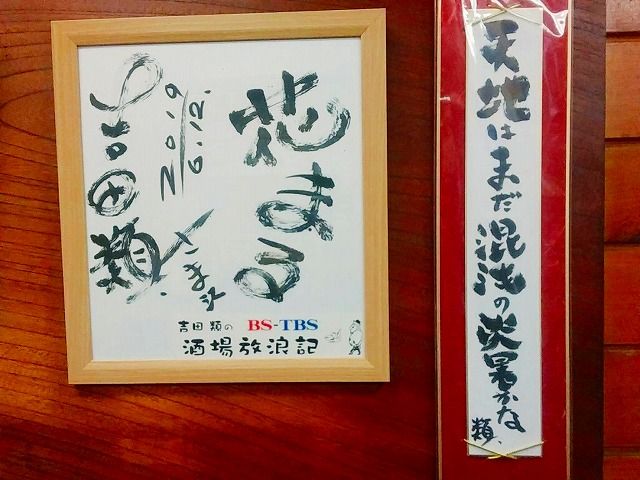 花まる
さま江
2019
6.12.
吉田類
吉田 類の BS-TBS
酒場放浪記
天地はまだ混沌の炎暑かな
類